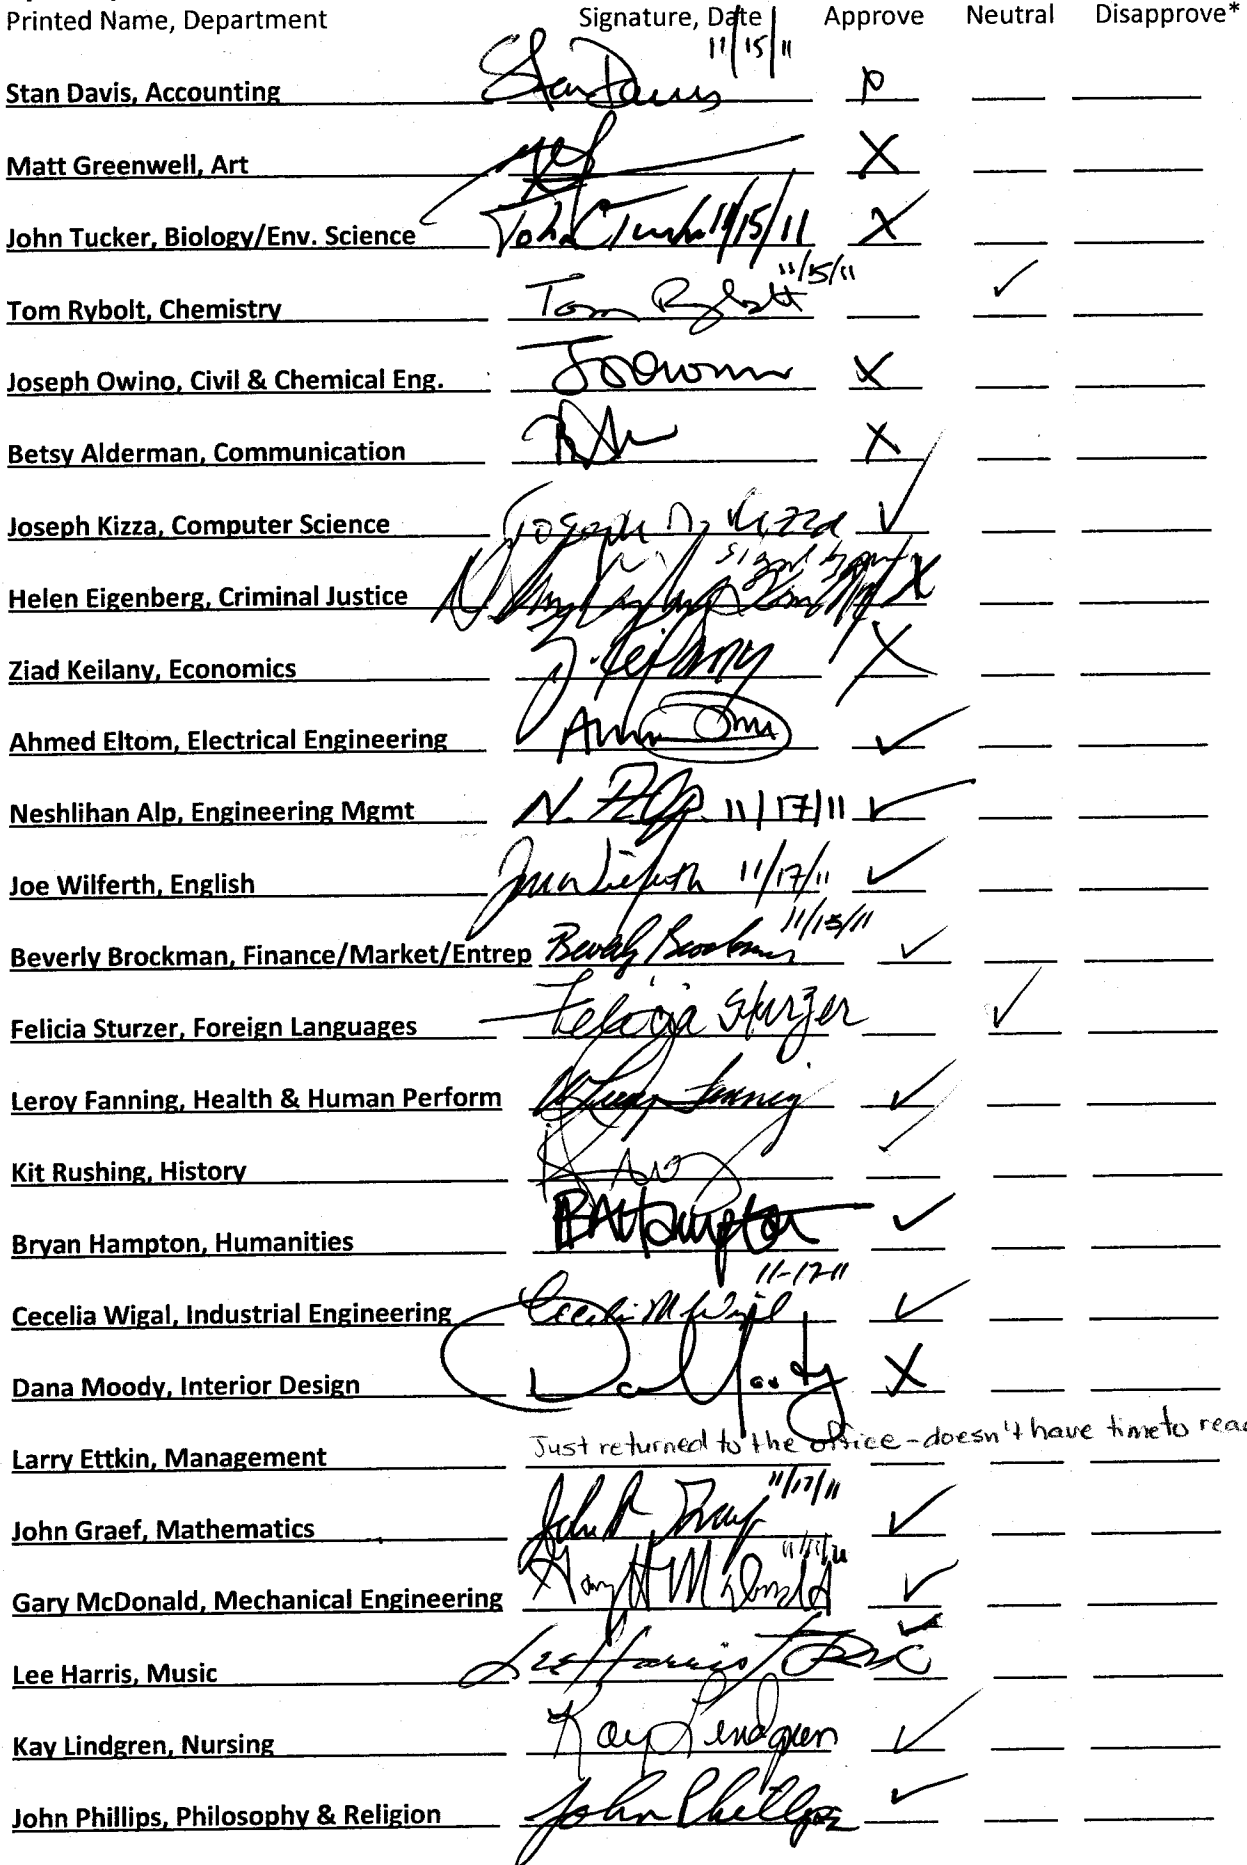 Printed Name, Department Signature, Date Approve Neutral Disapprove*
11/15/11
Stan Davis, Accounting Stan Davis
Matt Greenwell, Art X
John Tucker, Biology/Env. Science John Tucker 11/15/11 X
11/15/11 ✓
Tom Rybolt, Chemistry Tom Rybolt
Joseph Owino, Civil & Chemical Eng. JoOwino X
Betsy Alderman, Communication X
Joseph Kizza, Computer Science Joseph M. Kizza ✓
Helen Eigenberg, Criminal Justice X
Ziad Keilany, Economics Z. Keilany X
Ahmed Eltom, Electrical Engineering ✓
Neshlihan Alp, Engineering Mgmt N. Alp. 11/17/11 ✓
Joe Wilferth, English Joe Wilferth 11/17/11 ✓
11/15/11
Beverly Brockman, Finance/Market/Entrep Beverly Brockman ✓
Felicia Sturzer, Foreign Languages Felicia Sturzer ✓
Leroy Fanning, Health & Human Perform Leroy Fanning ✓
Kit Rushing, History ✓
Bryan Hampton, Humanities BAHampton ✓
11-17-11
Cecelia Wigal, Industrial Engineering Cecelia M Wigal ✓
Dana Moody, Interior Design Dana Moody X
Just returned to the office - doesn't have time to read
Larry Ettkin, Management
11/17/11
John Graef, Mathematics John R. Graef ✓
Gary McDonald, Mechanical Engineering Gary H McDonald ✓
Lee Harris, Music Lee Harris ✓
Kay Lindgren, Nursing Kay Lindgren ✓
John Phillips, Philosophy & Religion John Phillips ✓